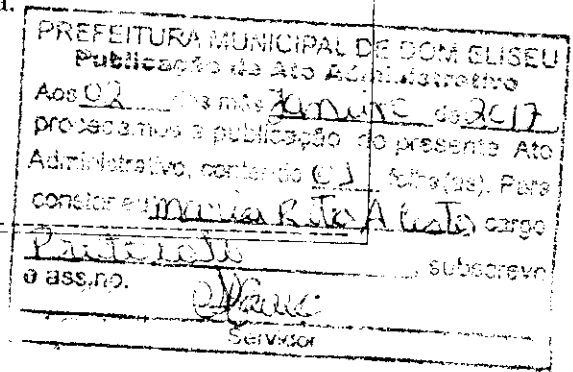 PREFEITURA MUNICIPAL DE DOM ELISEU
Publicação de Ato Administrativo
Aos 02 dias mês de 2017
procedamos a publicação do presente Ato
Administrativo, contendo 01 folha(as). Para
constar eu Maria Rita A cargo
subscrevo
e assino.
Servidor